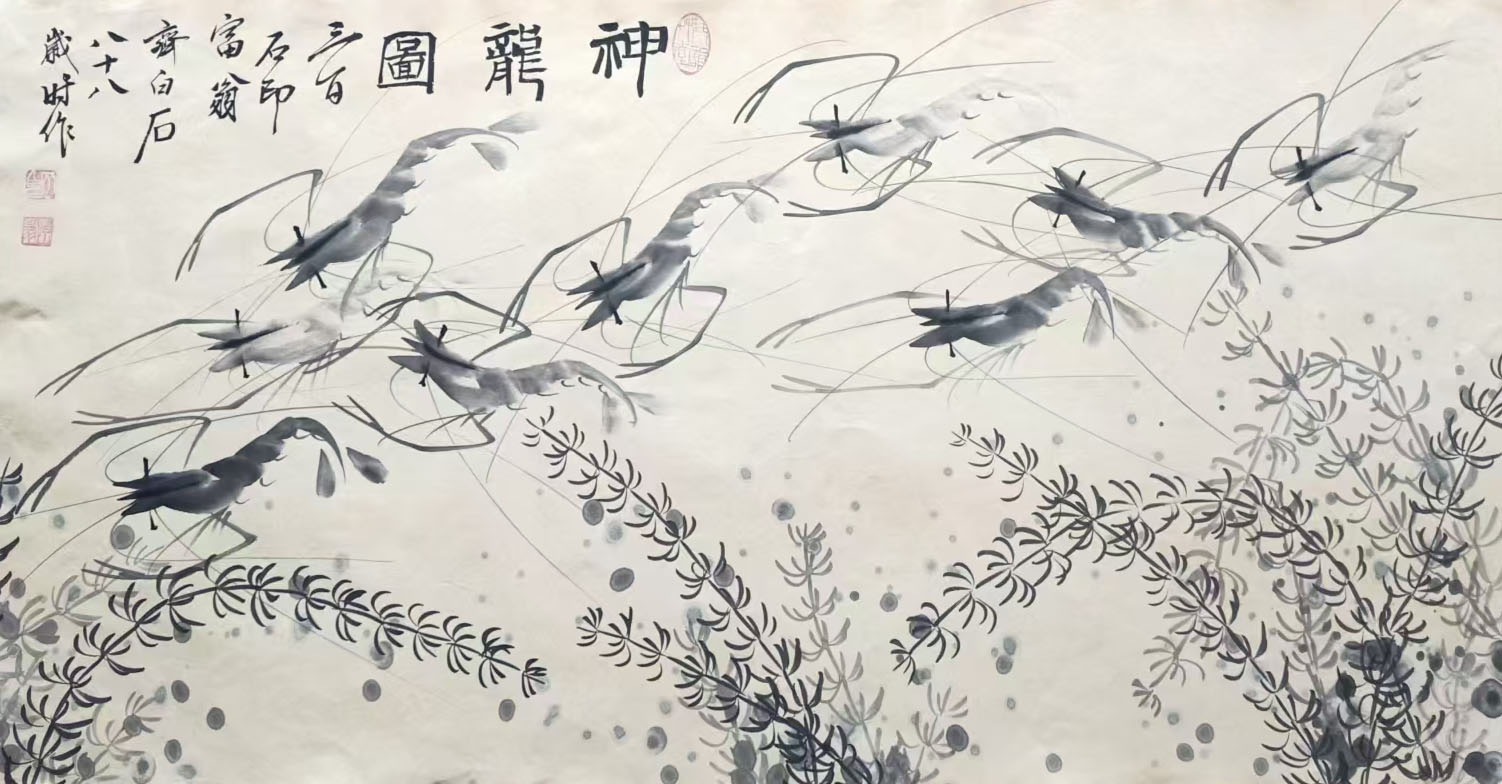 神龍圖
三百
石印
富翁
齊白石
八十八
歲時作